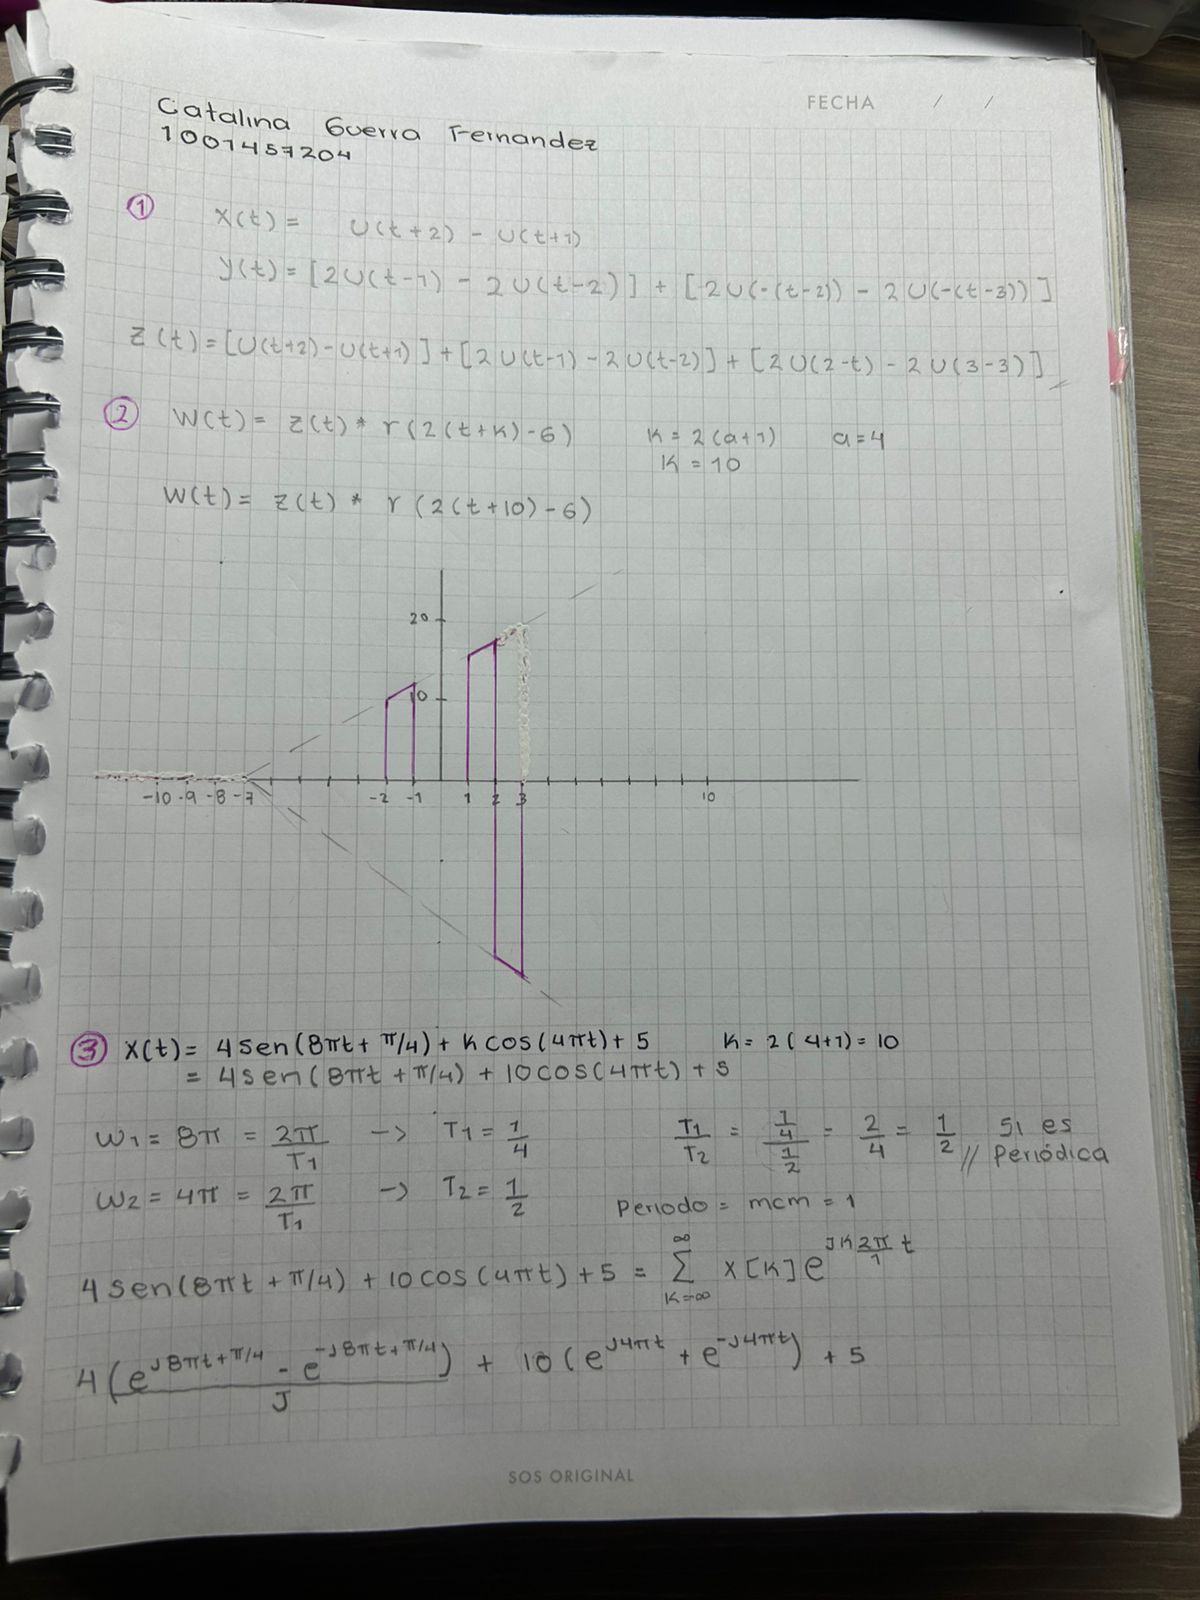 FECHA / /
Catalina Guerra Fernandez
1001457204
① x(t) = U(t+2) - U(t+1)
y(t) = [2U(t-1) - 2U(t-2)] + [2U(-(t-2)) - 2U(-(t-3))]
Z(t) = [U(t+2)-U(t+1)] + [2U(t-1) - 2U(t-2)] + [2U(2-t) - 2U(3-3)]
② W(t) = z(t) * r(2(t+k)-6) k = 2(a+1) a=4
k = 10
W(t) = z(t) * r(2(t+10)-6)
20
10
-10 -9 -8 -7 -2 -1 1 2 3 10
③ x(t) = 4sen(8πt + π/4) + k cos(4πt) + 5 k = 2(4+1) = 10
= 4sen(8πt + π/4) + 10cos(4πt) + 5
ω1 = 8π = 2π/T1 -> T1 = 1/4 T1/T2 = (1/4)/(1/2) = 2/4 = 1/2 // Si es Periódica
ω2 = 4π = 2π/T1 -> T2 = 1/2 Periodo = mcm = 1
4sen(8πt + π/4) + 10cos(4πt) + 5 = ∞ Σ k=-∞ X[k] e^jk 2π/1 t
4(e^j8πt+π/4 - e^-j8πt+π/4)/J + 10(e^j4πt + e^-j4πt) + 5
SOS ORIGINAL